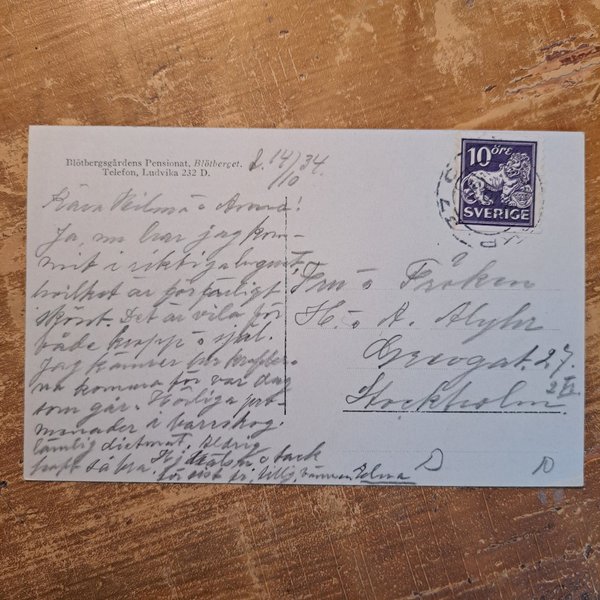 Blötbergsgårdens Pensionat, Blötberget.
Telefon, Ludvika 232 D.
d. 14/10 34.
Kära o Anna!
Ja, nu har jag kom-
mit i riktiga lugnet,
hvilket är förfärligt
skönt. Det är vila för
både kropp o själ.
Jag känner hur krafter-
na komma för var dag
som går. Härliga pro-
menader i barrskog.
Lämlig dietmat. Aldrig
haft så bra. Hj. hälsn. o tack
för sist fr. vännen Selma
10 ÖRE
SVERIGE
Fru o Fröken
H. o A.
27
2
Stockholm